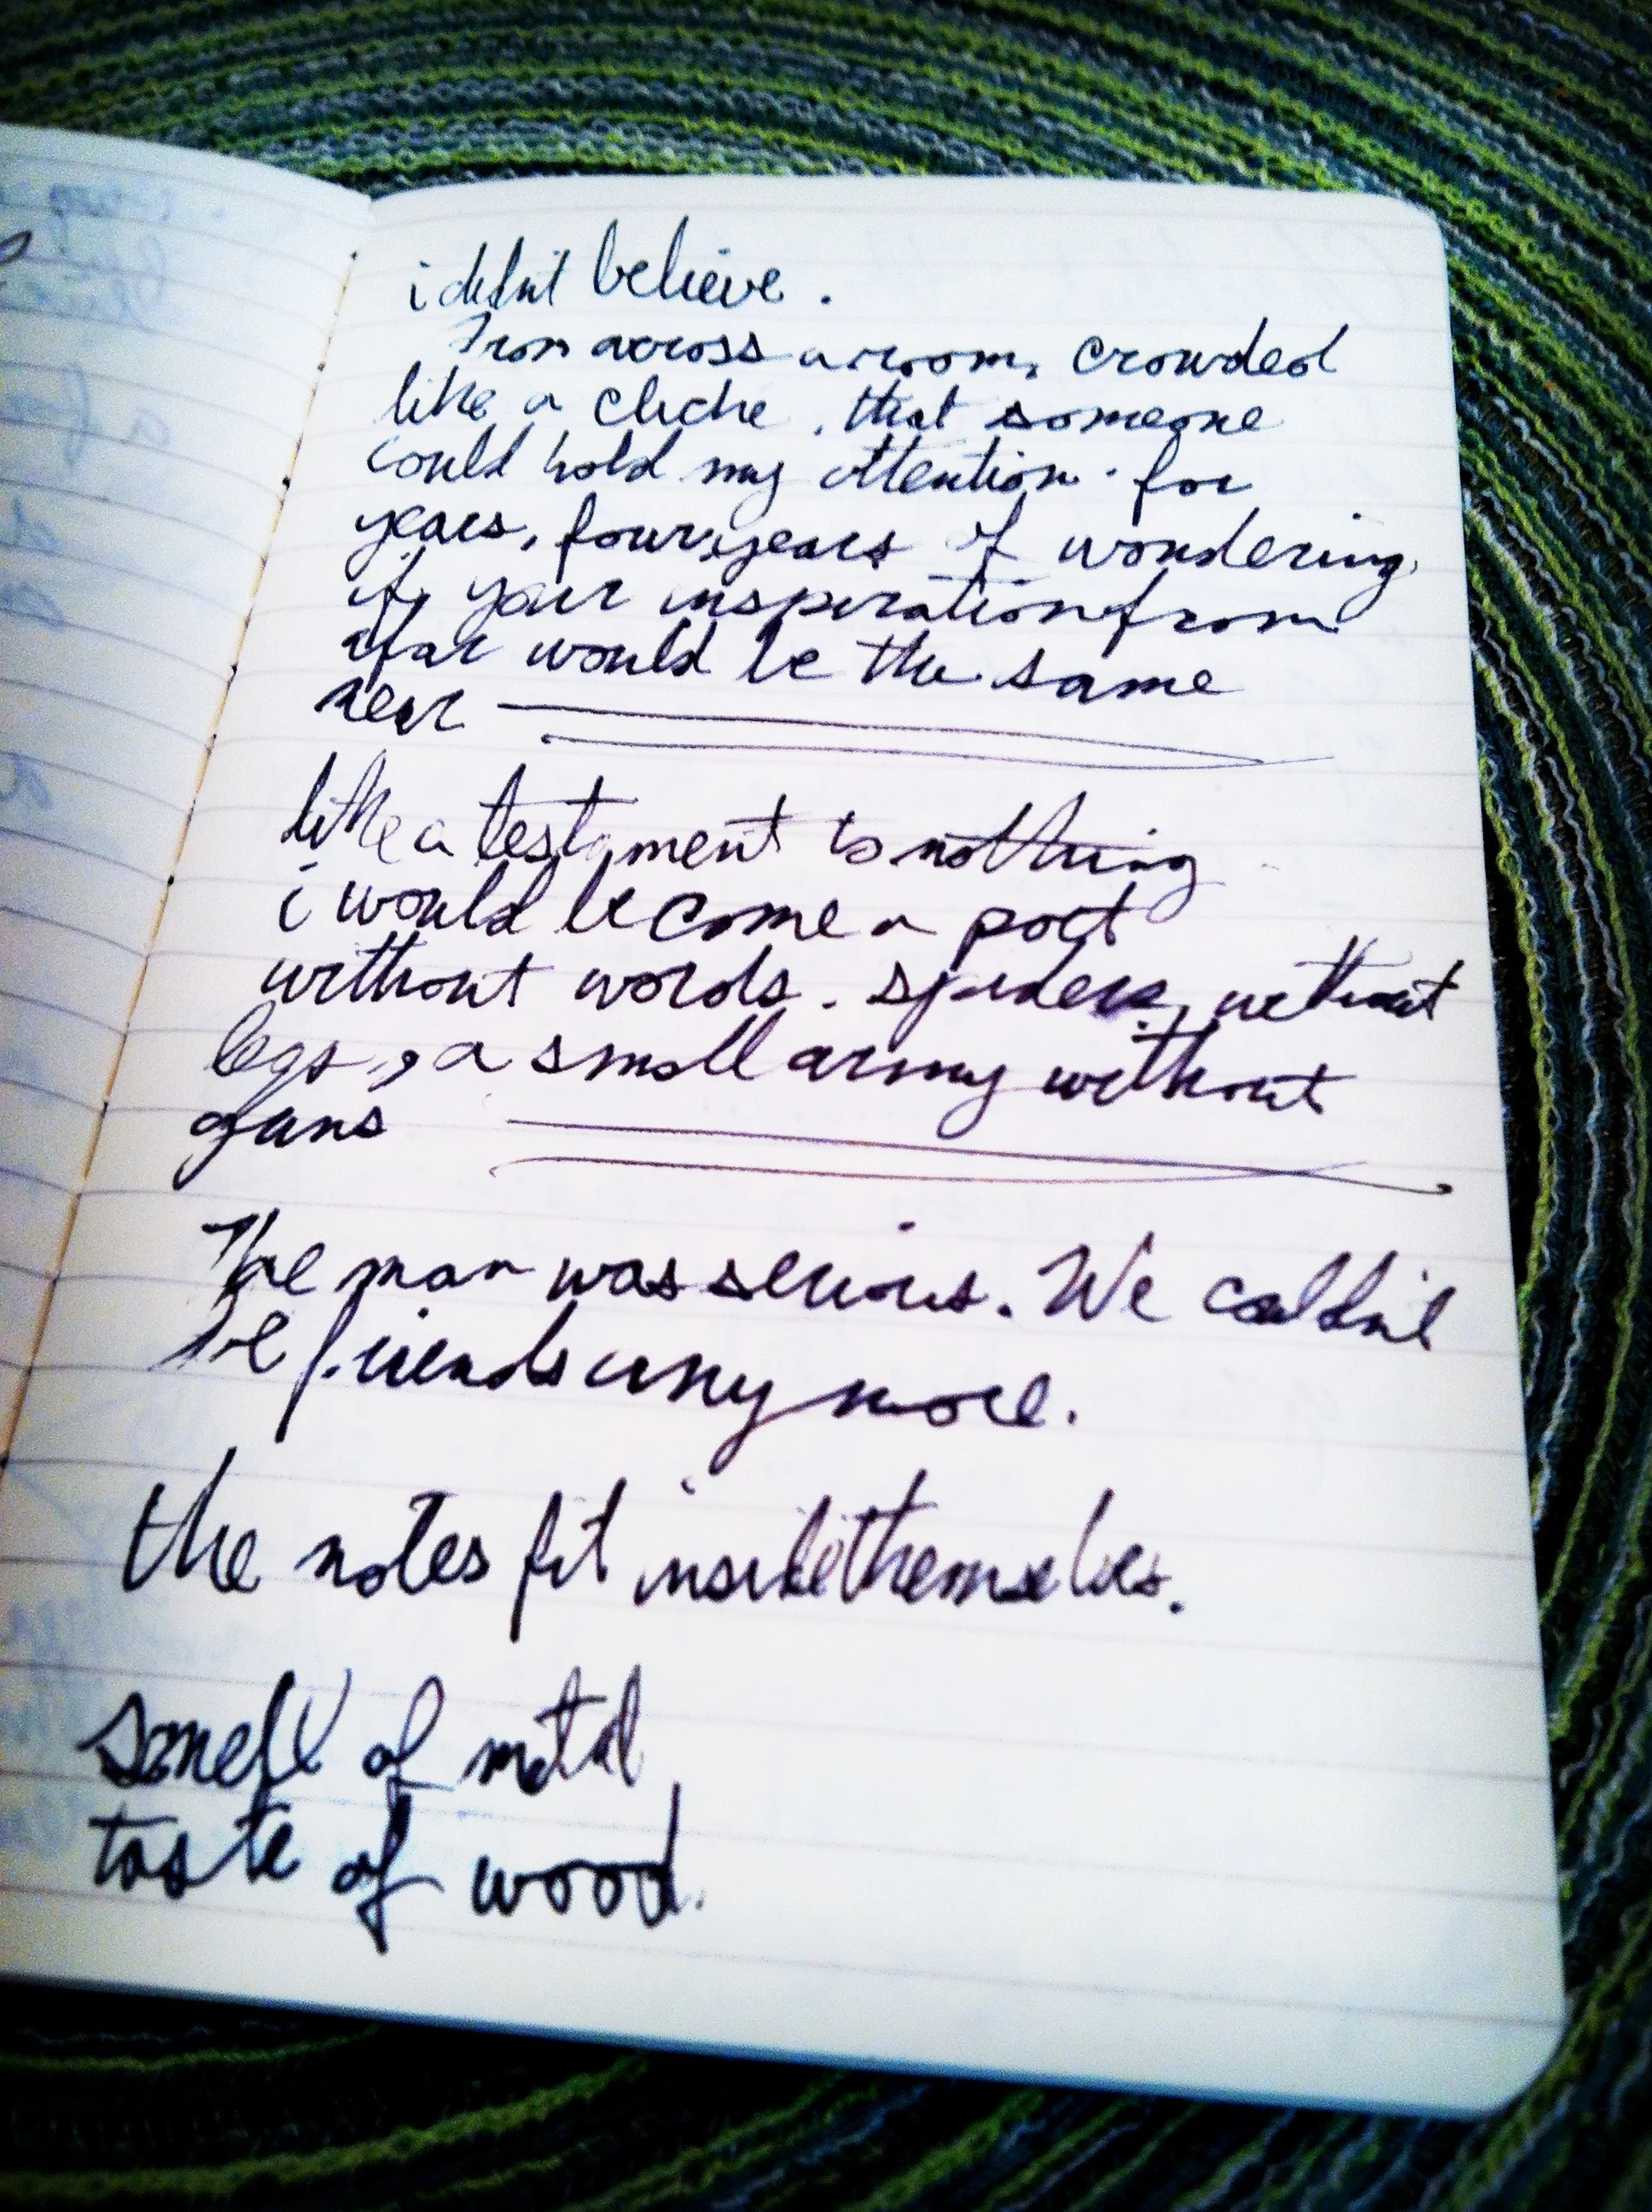 i didn't believe.
From across a room, crowded
like a cliche, that someone
could hold my attention. for
years, four years of wondering
if your inspiration from
afar would be the same
near
like a testament to nothing
i would become a poet
without words. spiders without
legs, a small army without
guns
The man was serious. We couldn't
be friends anymore.
the notes fit inside themselves.
smell of metal
taste of wood.